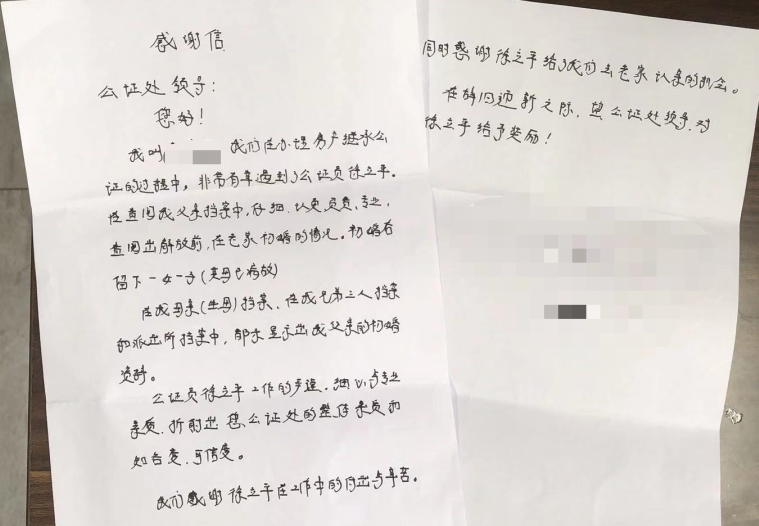 感谢信
公证处领导：
您好！
我叫 我们在办理房产继承公
证的过程中，非常有幸遇到了公证员徐立平。
在查阅我父亲档案中，仔细、认真负责、专业，
查阅出解放前，在老家初婚的情况。初婚右
留下一女一子(其母已病故)
在我母亲(生母)档案、在我兄弟三人档案
和派出所档案中，都未显示出我父亲的初婚
资料。
公证员徐立平工作的步连、细心与专业
素质，折射出您公证处的整体素质和
知名度、可信度。
我们感谢徐立平在工作中的付出与辛苦。
同时感谢徐立平给了我们去老家认亲的机会。
在辞旧迎新之际，望公证处领导，对
徐立平给予奖励！